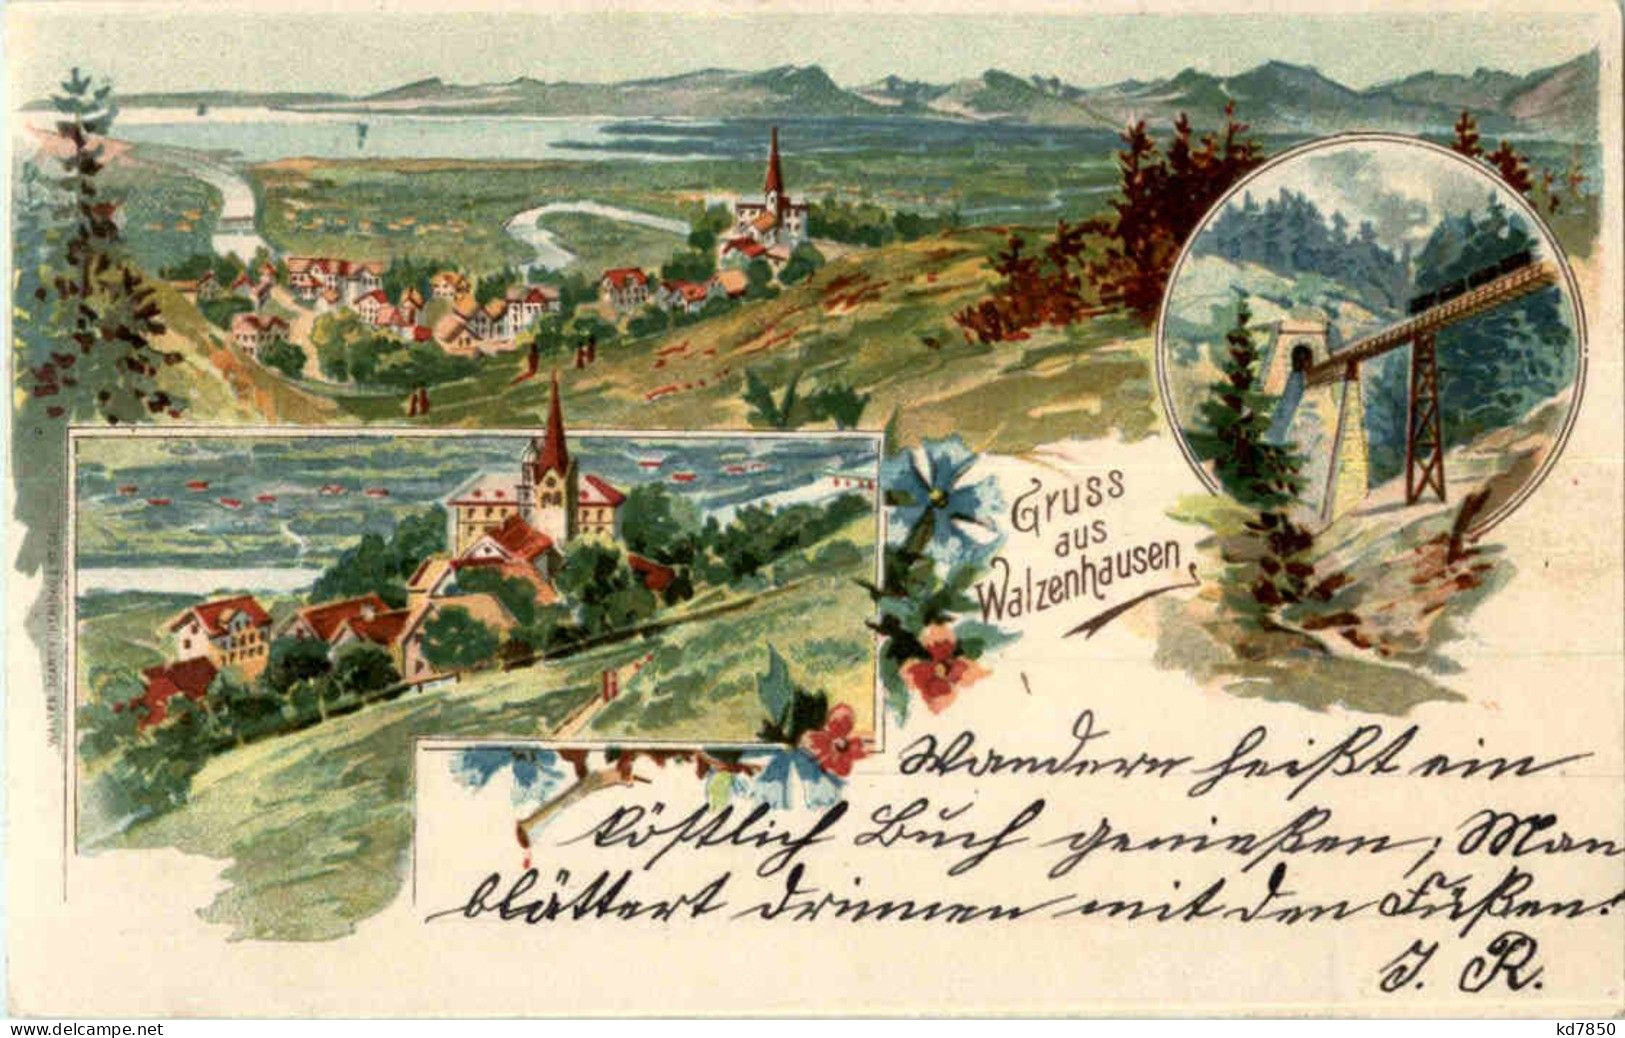 Gruss
aus
Walzenhausen
Wandern heißt ein
köstlich Buch genießen; Man
blättert drinnen mit den Füßen!
J. R.
www.delcampe.net
kd7850